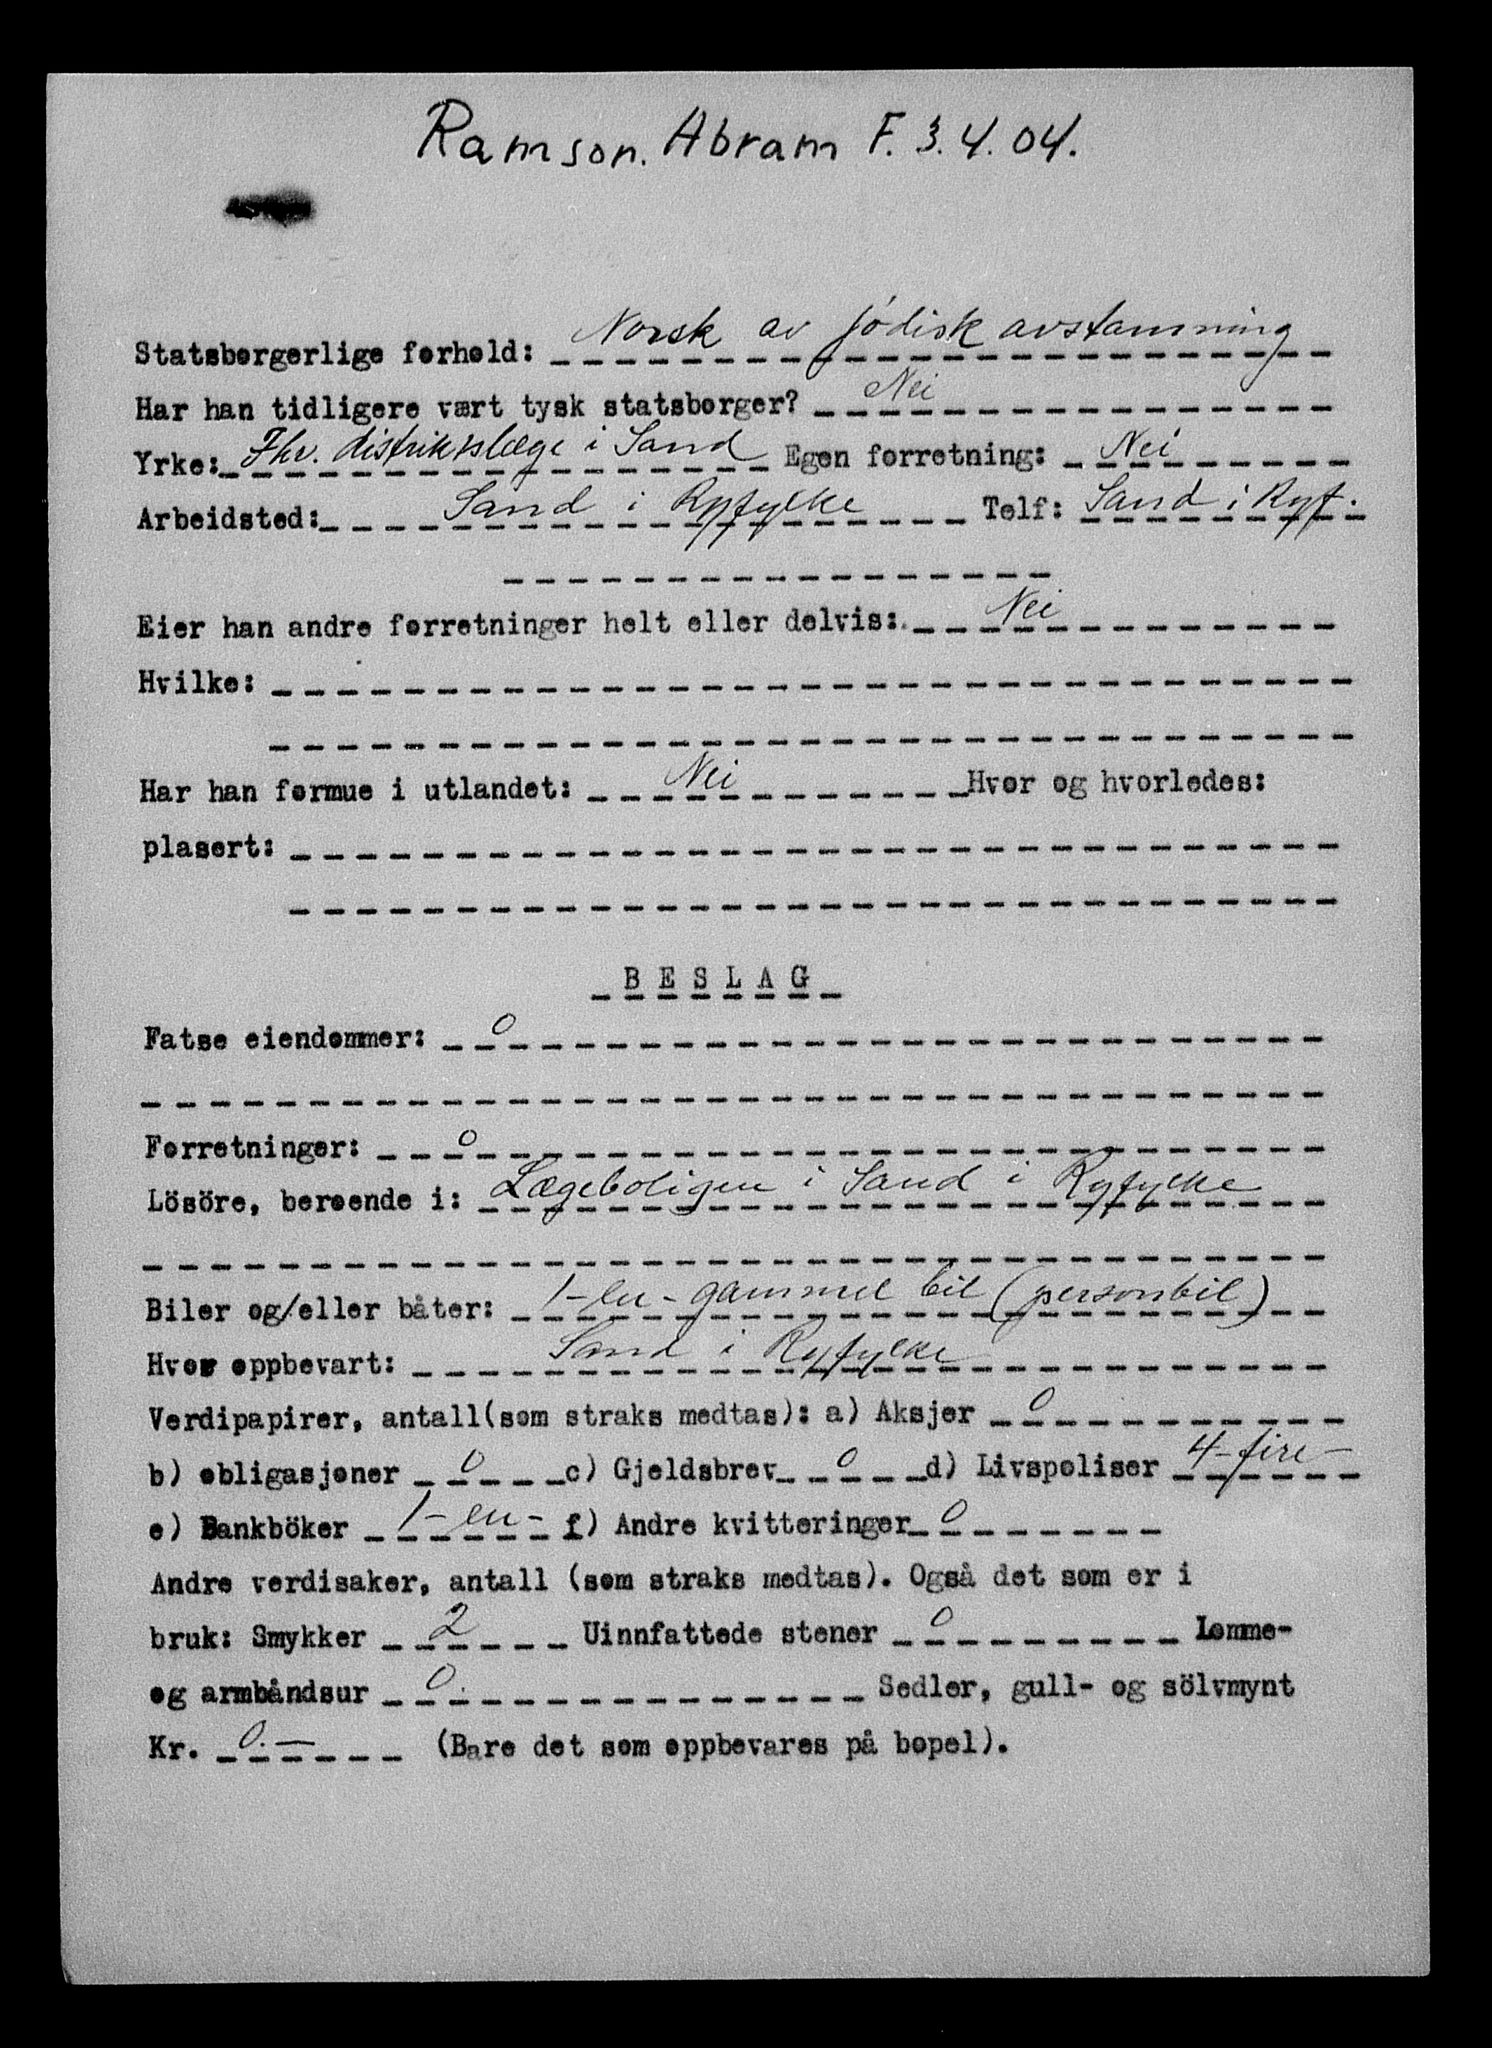 Ramson. Abram F. 3.4.04.
Statsborgerlige forhold: Norsk av jødisk avstamning
Har han tidligere vært tysk statsborger? Nei
Yrke: Fhv. distriktslæge i Sand Egen forretning: Nei
Arbeidsted: Sand i Ryfylke Telf: Sand i Ryf.
Eier han andre forretninger helt eller delvis: Nei
Hvilke:
Har han formue i utlandet: Nei Hvor og hvorledes:
plasert:
BESLAG
Fatse eiendommer: 0
Forretninger: 0
Lösöre, beroende i: Lægeboligen i Sand i Ryfylke
Biler og/eller båter: 1-en- gammel bil (personbil)
Hvor oppbevart: Sand i Ryfylke
Verdipapirer, antall(som straks medtas): a) Aksjer 0
b) obligasjoner 0 c) Gjeldsbrev 0 d) Livspoliser 4-fire-
e) Bankböker 1-en- f) Andre kvitteringer 0
Andre verdisaker, antall (som straks medtas). Også det som er i
bruk: Smykker 2 Uinnfattede stener 0 Lomme-
og armbåndsur 0. Sedler, gull- og sölvmynt
Kr. 0.— (Bare det som oppbevares på bopel).